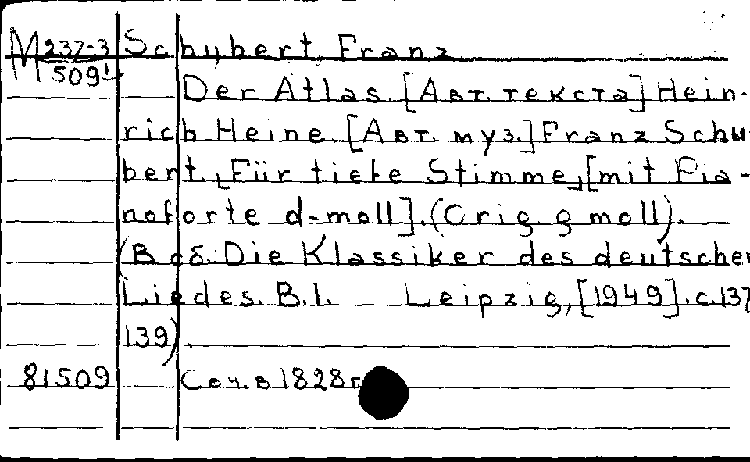 М 237-3 Schubert, Franz
509¹ Der Atlas. [Авт. текста] Hein-
rich Heine. [Авт. муз.] Franz Schu
bert, Für tiefe Stimme, [mit Pia-
noforte d-moll]. (Orig. g moll).
(В сб: Die Klassiker des deutschen
Liedes. B.1. – Leipzig, [1949]. с. 137
139)
81509 Соч. в 1828 г